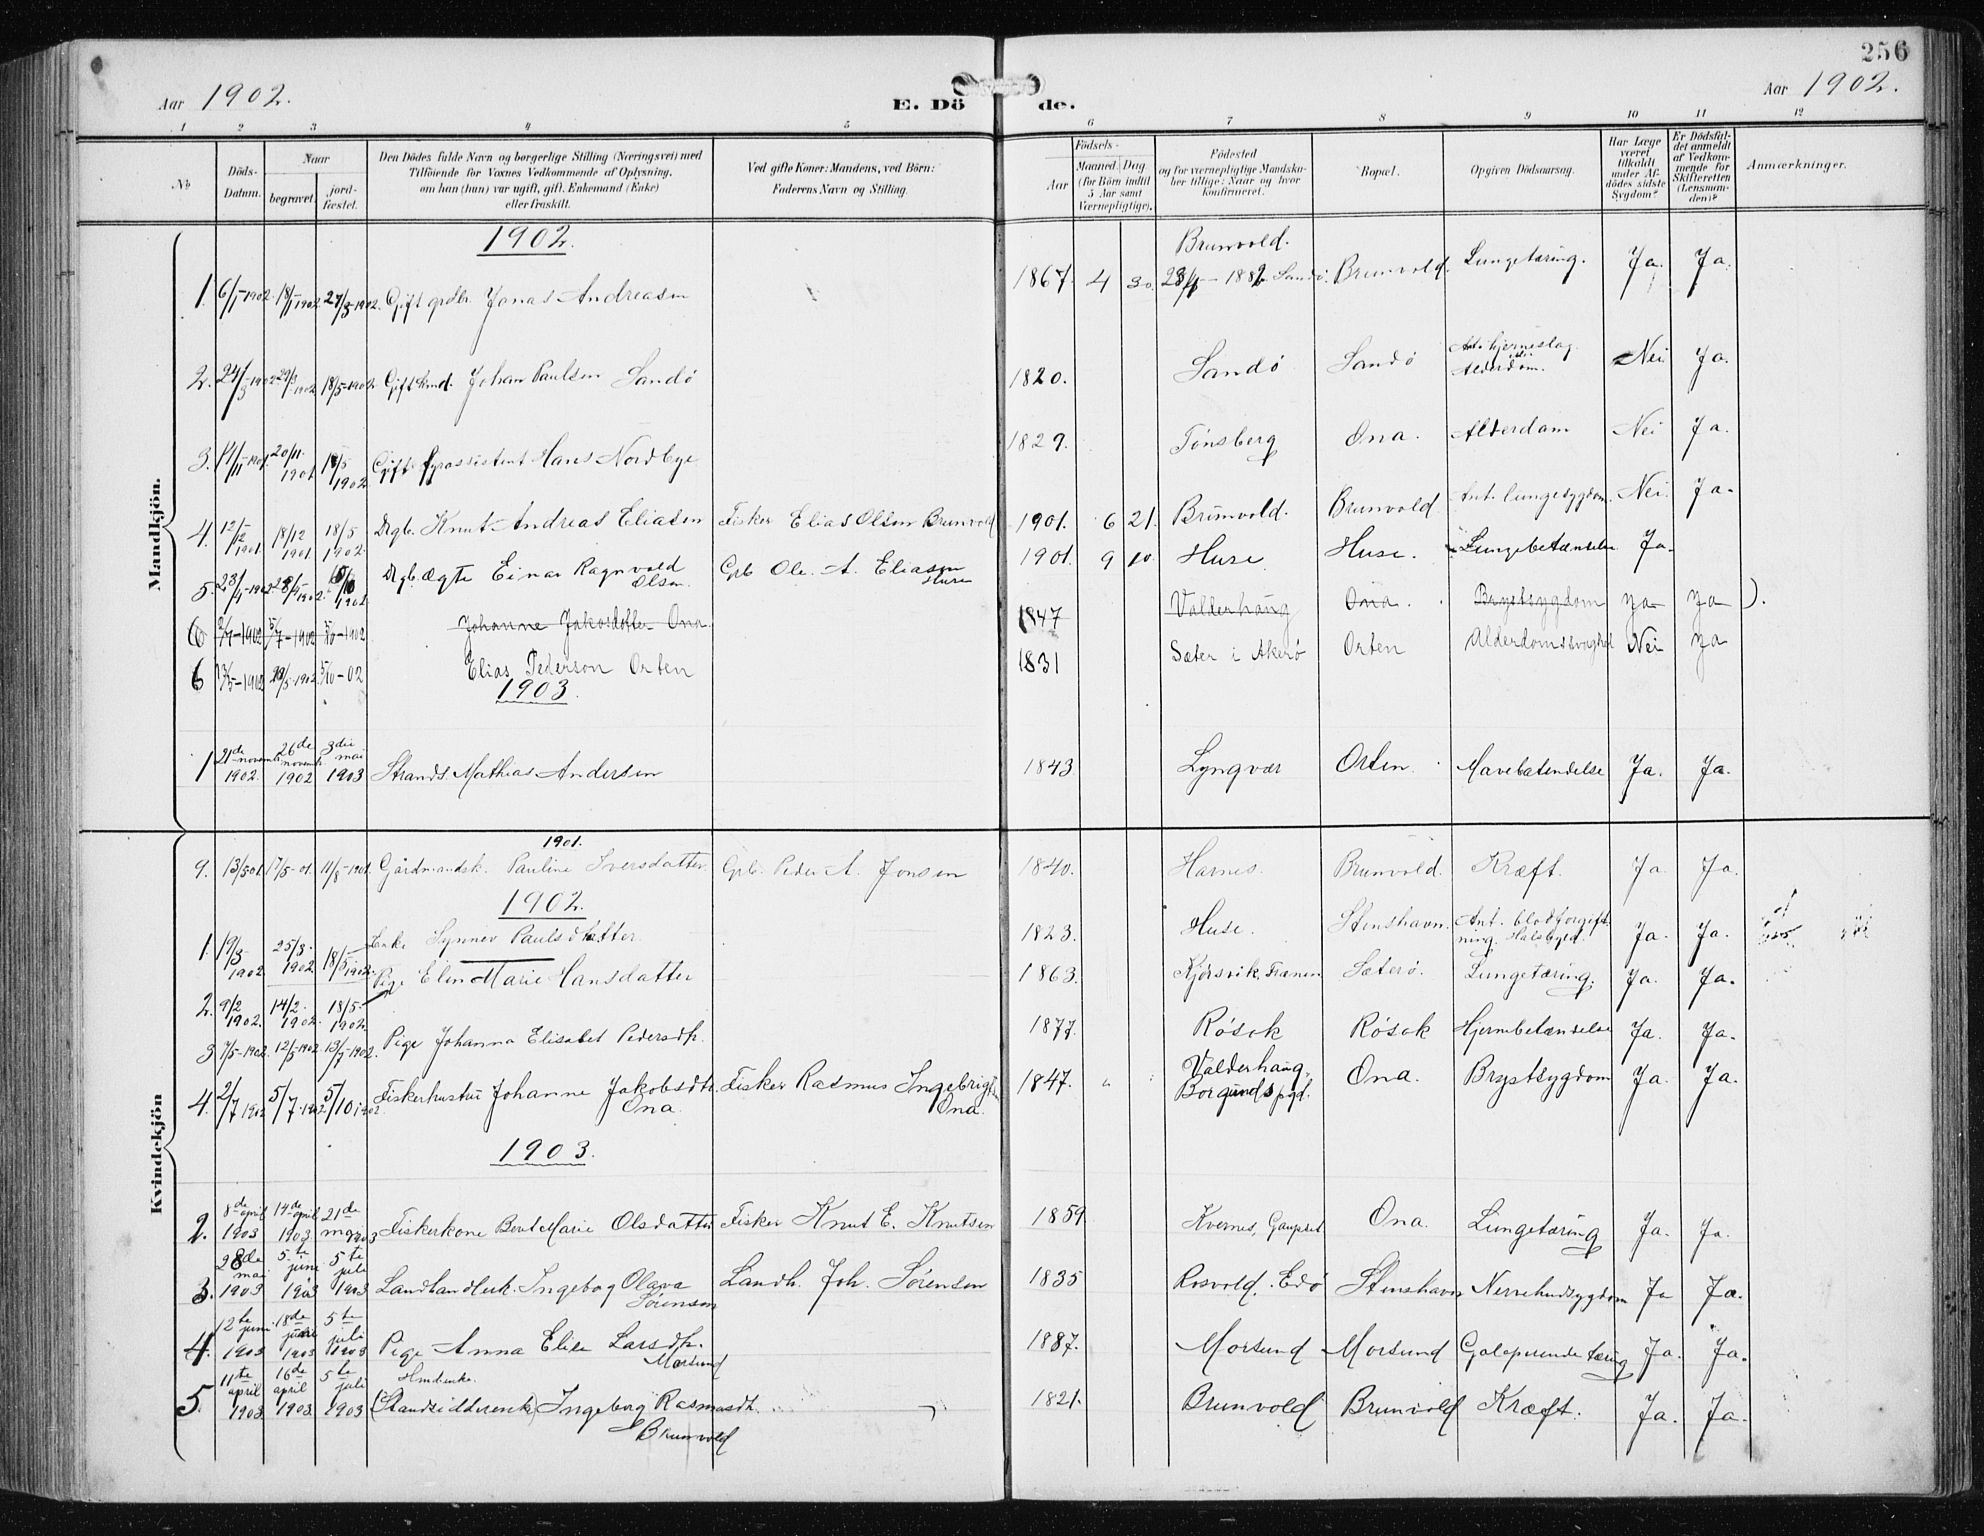 256
Aar 1902.
E. Döde.
Aar 1902.
1 2 3 4 5 6 7 8 9 10 11 12
No
Döds-Datum.
Naar
begravet.
jord-fæstet.
Den Dödes fulde Navn og borgerlige Stilling (Næringsvei) med
Tilföiende for Voxnes Vedkommende af Oplysning,
om han (hun) var ugift, gift, Enkemand (Enke)
eller fraskilt.
Ved gifte Koner: Mandens, ved Börn:
Faderens Navn og Stilling.
Födsels-
Aar
Maaned. Dag
(for Börn indtil
5 Aar samt
Værnepligtige).
Födested
og for værnepligtige Mandska-
ber tillige: Naar og hvor
konfirmeret.
Bopæl.
Opgiven Dödsaarsag.
Har Læge
været
tilkaldt
under Af-
dödes sidste
Sygdom?
Er Dödsfal-
det anmeldt
af Vedkom-
mende for
Skifteretten
(Lensman-
den)?
Anmærkninger.
Mandkjön.
1902.
1. 6/1-1902. 18/1 1902 Gift grdbr. Jonas Andreasen 1867. 4 30. Brunvold. Sandö. Brunvold. Lungetæring. Ja. Ja.
2. 24/3-1902 29/3-1902 18/5-1902 Gift kmd. Johan Paulsen Sandö 1820. Sandö Sandö Ant. hjerneslag Alderdom. Nei Ja.
3. 14/11-1901. 20/11. 1901 18/5 1902 Gift fyrassistent Hans Nordbye 1829. Tönsberg Ona. Alderdom Nei Ja.
4. 12/12 1901. 18/12 1901. 18/5 1902. Drgb. Knut Andreas Eliasen Fisker Elias Olsen Brunvold 1901. 6 21. Brunvold. Brunvold Ant. lungesygdom. Nei. Ja.
5. 23/1-1902 1902 Drgb. Ægte Einar Ragnvald Olsen Grb Ole. A. Eliasen Huse 1901. 9 10. Huse Huse. Lungebetændelse Ja.
6 2/7-1902 5/7-1902 5/10-1902 Johanne Jakobsdatter Ona. 1847 Valderhaug Ona. Brystsygdom Ja Ja ).
6 1902 5/10-02 Elias Pederson Orten 1831 Sæter i Akerö Orten Alderdomssvaghed Nei Ja
1903.
1 21de novemb 1902. 26de novemb 1902 3die mai 1903 Strands Mathias Andersen 1843 Lyngvær Orten. Mavebetendelse Ja. Ja.
Kvindekjön
1901.
9. 13/5 01. 17/5-01. 11/8-1901. Gårdmandsk. Pauline Iversdatter. Grb. Peder A. Jonsen 1840. Harnes. Brunvold. Kræft. Ja Ja.
1902.
1. 19/3 1902 25/3. 1902. 18/5 1902. Enke Synnev Paulsdatter 1823. Huse. Stenshavn. Ant. blodforgift-ning. Halsbyld. Ja. Ja.
2. 9/2 1902. 14/2. 1902. 18/5- 1902. Pige Elen Marie Hansdatter 1863. Kjörsvik, Frænen Sæterö. Lungetæring. Ja. Ja.
3 7/5-1902. 12/5-1902 13/7-1902. Pige Johanna Elisabet Pedersdtr. 1877. Rösok Rösok Hjernebetændelse Ja. Ja.
4. 2/7 1902 5/7-1902. 5/10 1902. Fiskerhustru Johanne Jakobsdtr. Ona. Fisker Rasmus Ingebrigtsen Ona. 1847. Valderhaug, Borgunds pgd. Ona. Brystsygdom Ja. Ja.
1903.
2. 8de april 1903 14de april 1903 21de mai 1903 Fiskerkone Berit Marie Olsdatter Fisker Knut E. Knutsen 1859 Kvernes, Gaupset Ona. Lungetæring Ja. Ja.
3. 28de mai. 1903 5te juni 1903 5te juli 1903 Landhandlersk. Ingebog Olava Sörensen Landh. Joh. Sörensen 1835 Rosvold. Edö Stenshavn Nervehudsygdom Ja Ja.
4. 12te juni 1903 18de juni 1903 5te juli 1903 Pige Anna Elise Larsdtr. Morsund 1887. Morsund Morsund Galoperende tæring Ja. Ja.
5. 11te april 1903. 16de april 1903. 5te juli 1903 Hmdenke. (Strandsidderenk) Ingeborg Rasmusdtr. Brunvold 1821. Brunvold Brunvold Kræft. Ja. Ja.